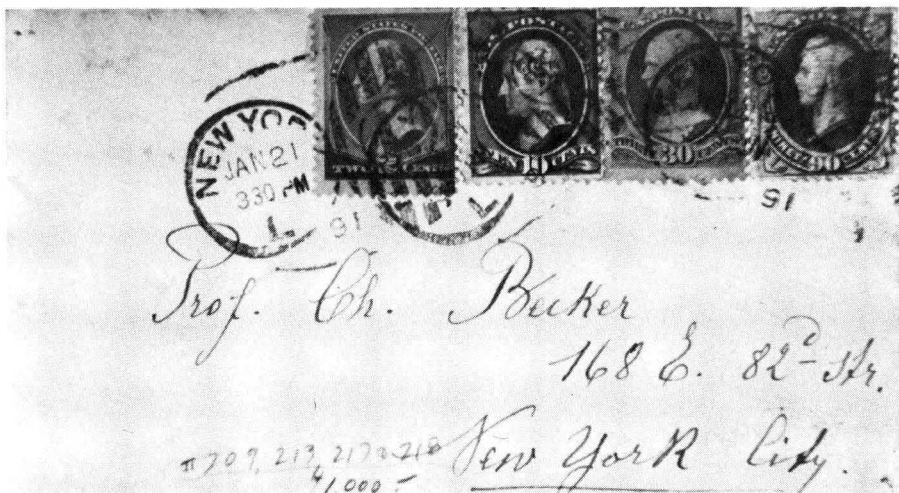 NEW YOR
JAN 21
330 PM
91
1
10
30
90
91
Prof. Ch. Becker
168 E. 82d Str.
New York City.
#209, 213, 217 & 218
$1,000 -